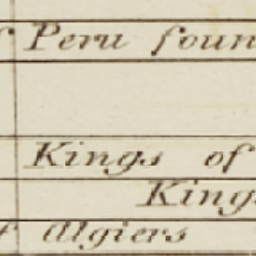 Peru foun
Kings of
King
Algiers